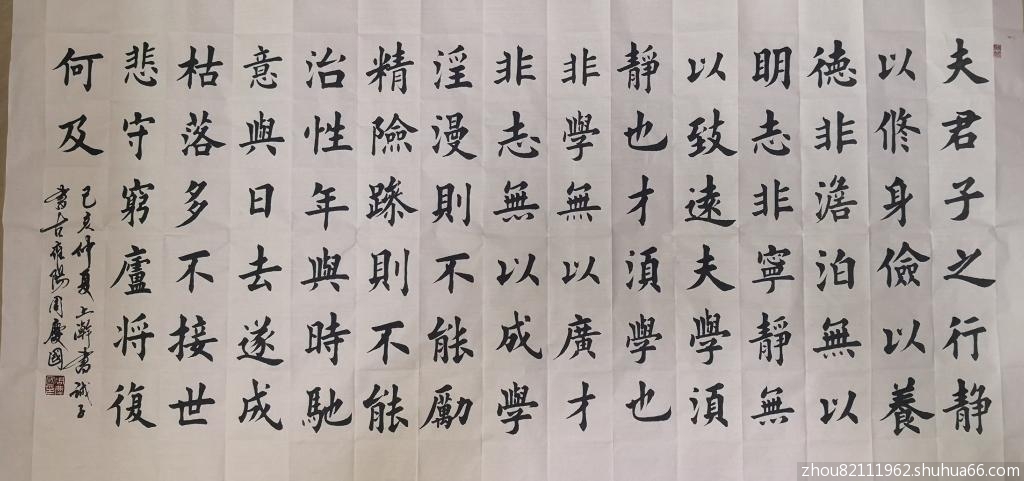 夫君子之行静
以修身儉以養
德非澹泊無以
明志非寧靜無
以致遠夫學須
靜也才須學也
非學無以廣才
非志無以成學
淫漫則不能勵
精險躁則不能
治性年與時馳
意與日去遂成
枯落多不接世
悲守窮廬将復
何及
己亥仲夏上澣書誡子
書古夜郎周慶國
zhou82111962.shuhua66.com